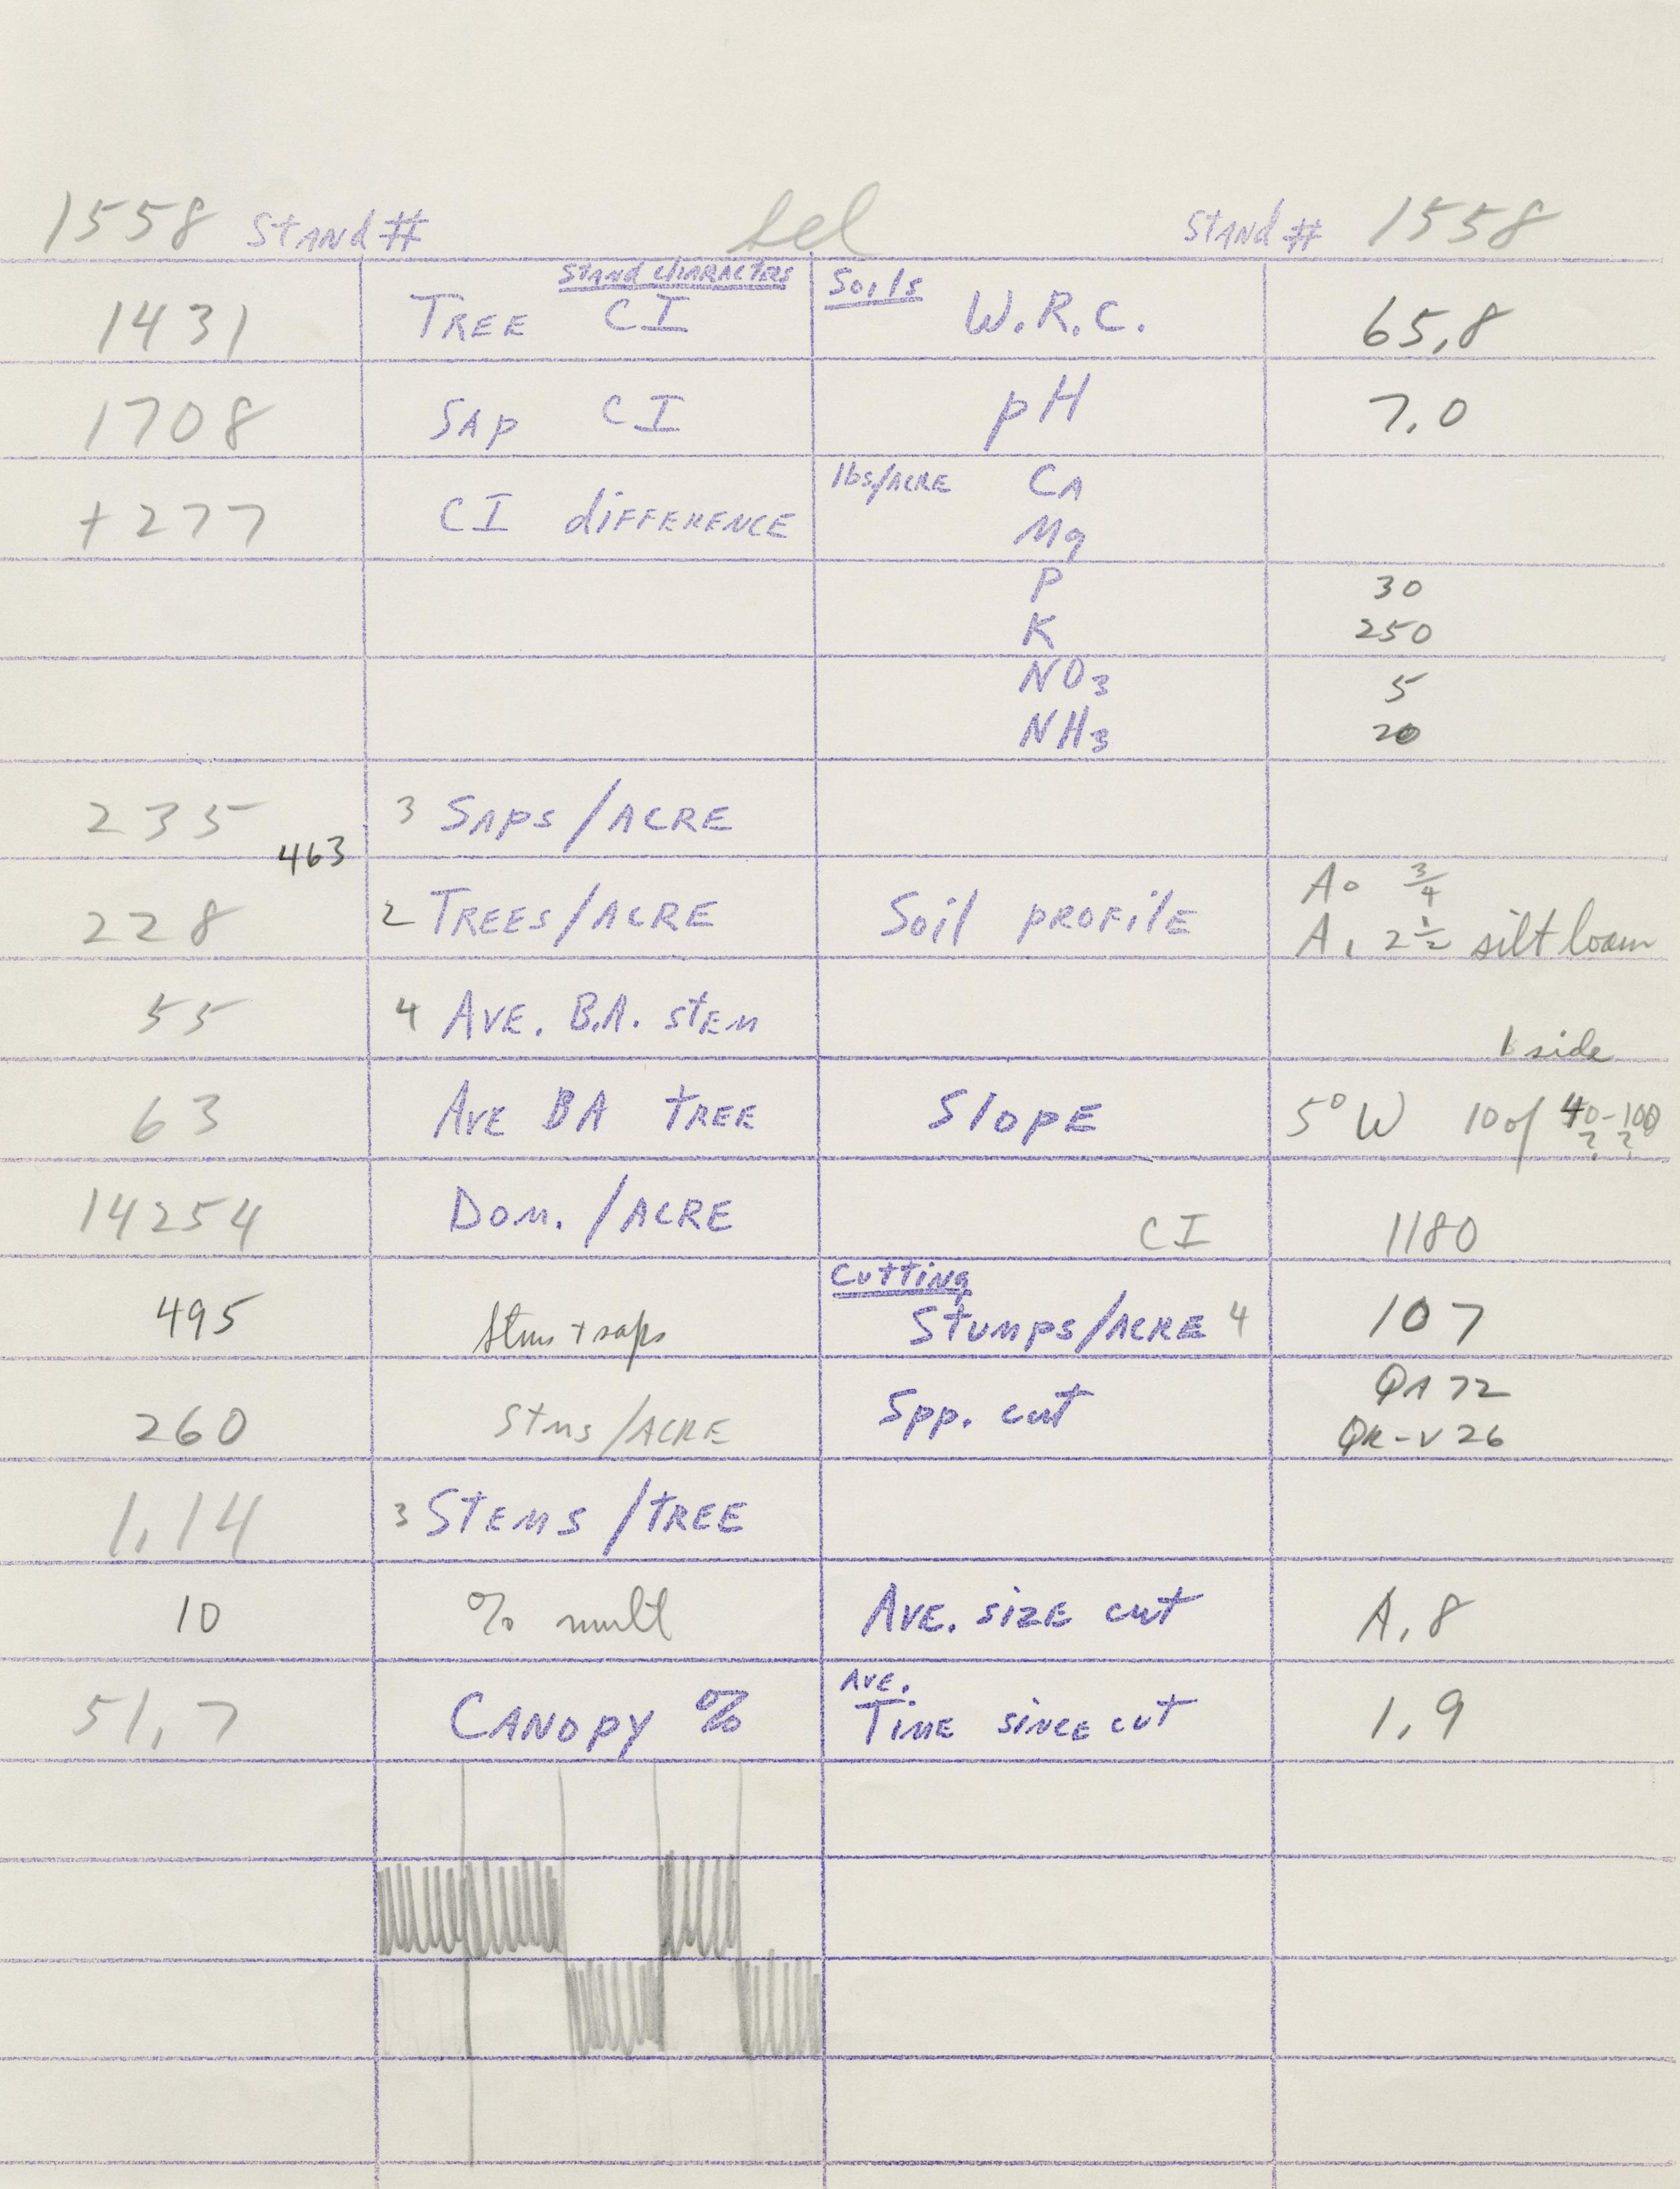 1558 Stand # sel Stand # 1558
Stand Characters Soils
1431 Tree CI W.R.C. 65,8
1708 Sap CI pH 7,0
lbs/Acre Ca
+277 CI difference Mg
P 30
K 250
NO3 5
NH3 20
235 3 Saps/Acre
463
A0 3/4
228 2 Trees/Acre Soil profile A1 2 1/2 silt loam
55 4 Ave. B.A. stem
side
63 Ave BA tree Slope 5° W 10 of 40-100
? ?
14254 Dom. /Acre CI 1180
Cutting
495 stms + saps Stumps/Acre 4 107
QA 72
260 Stms/Acre Spp. cut QR-V 26
1,14 3 Stems/tree
10 % mult Ave. size cut A,8
Ave.
51,7 Canopy % Time since cut 1,9